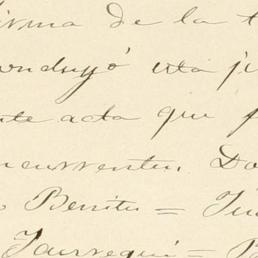 firma de la t
condujó esta ju
nte acta que f
ncurrentes. Do
o Benito = Ju
Jaurregui = B